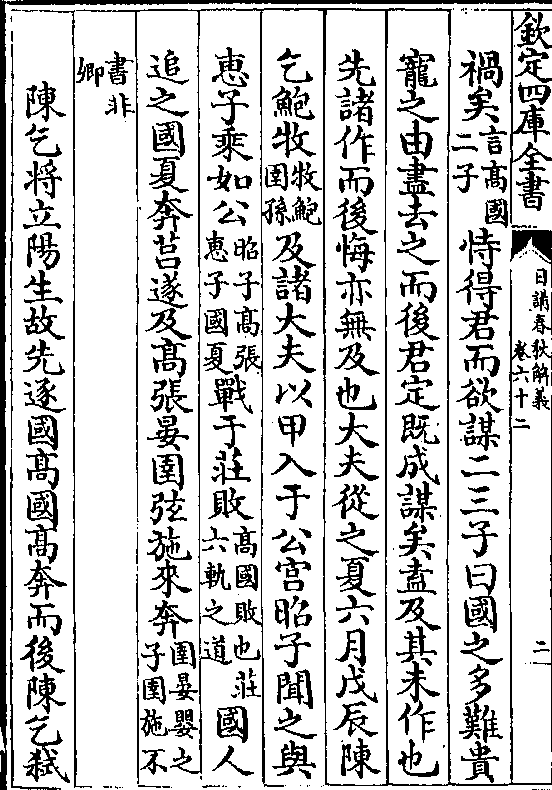 欽定四庫全書
日講春秋解義
卷六十二
二
禍矣言髙國二子恃得君而欲謀二三子曰國之多難貴
寵之由盡去之而後君定既成謀矣盍及其未作也
先諸作而後悔亦無及也大夫從之夏六月戊辰陳
乞鮑牧牧鮑圉孫及諸大夫以甲入于公宫昭子聞之與
恵子乘如公昭子髙張恵子國夏戰于莊敗髙國敗也莊六軌之道國人
追之國夏奔莒遂及髙張晏圉弦施來奔圉晏嬰之子圉施不
書非卿
陳乞將立陽生故先逐國髙國髙奔而後陳乞弒